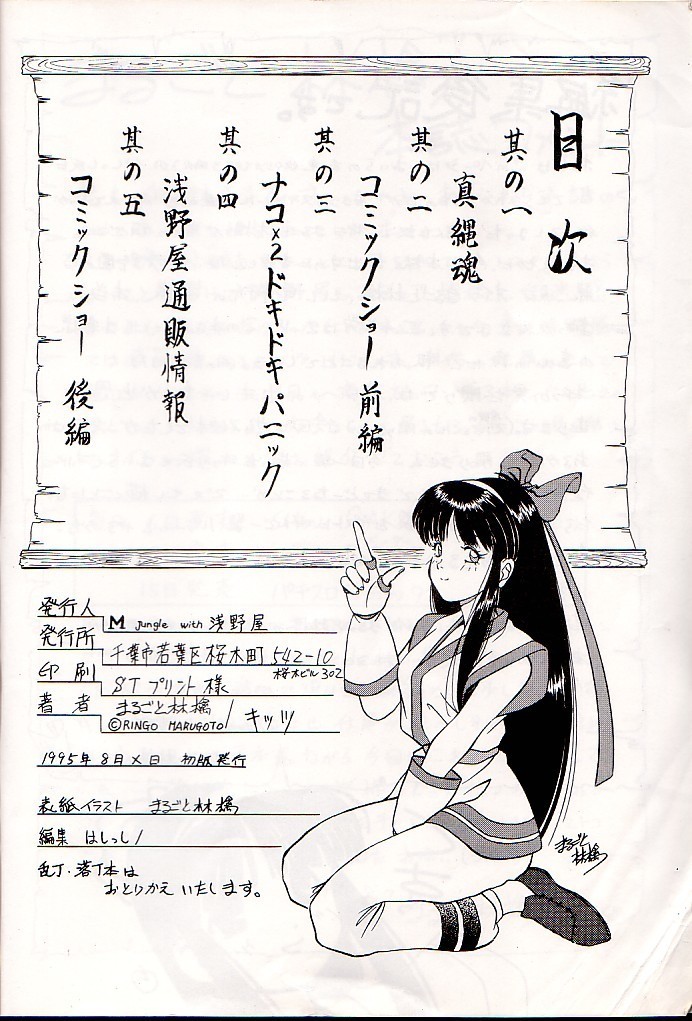 目次
其の一
真縄魂
其の二
コミックショー 前編
其の三
ナコ×2ドキドキパニック
其の四
浅野屋通販情報
其の五
コミックショー 後編
発行人
発行所
M Jungle with 浅野屋
千葉市若葉区桜木町542-10
桜木ビル302
印刷
STプリント様
著者
まるごと林檎/キッツ
©RINGO MARUGOTO
1995年8月×日 初版発行
表紙イラスト まるごと林檎
編集 はしっし/
乱丁・落丁本は
おとりかえいたします。
まるごと
林檎